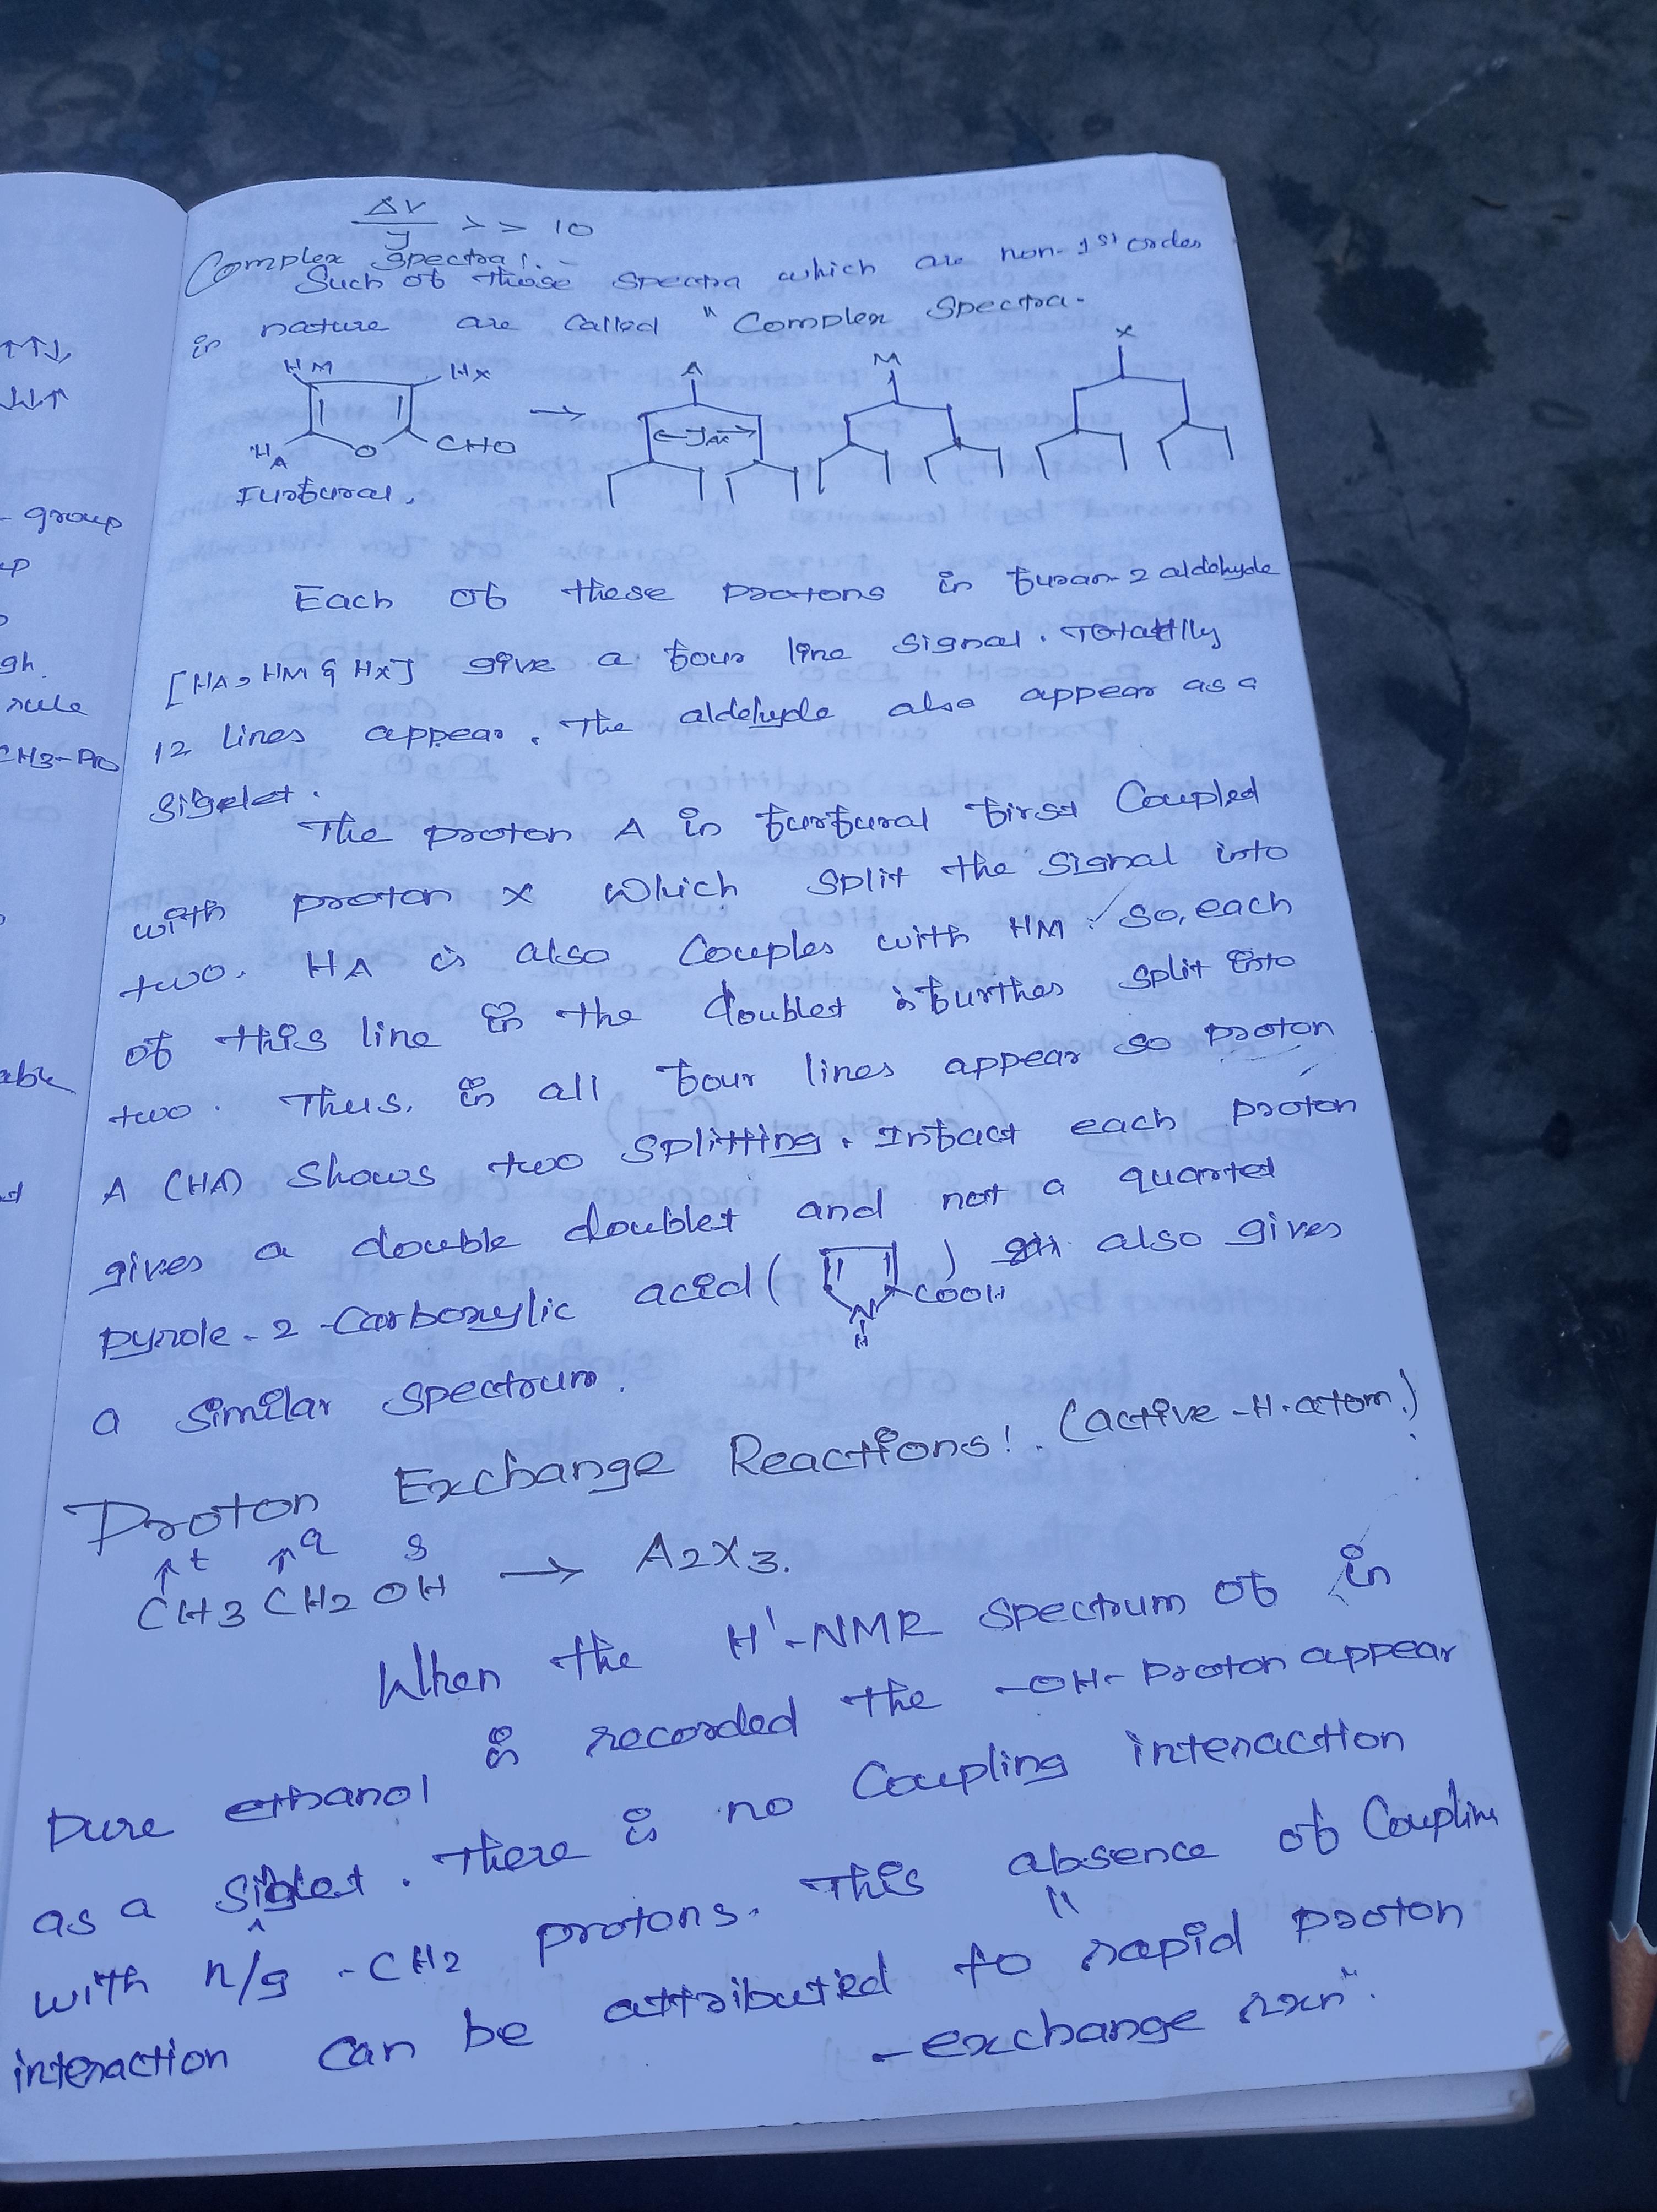 ↑↑↓,
↓↓↑
- group
gh.
rule
CH3-
able
ΔV
J >> 10
Complex Spectra:-
Such of those Spectra which are non-1st order
in nature are Called "Complex Spectra.
HM HX → A M X
←JAX→
HA O CHO
Furfural.
Each of these protons in furan-2 aldehyde
[HA, HM & HX] give a four line signal. Totally
12 lines appear. The aldehyde also appear as a
siglet.
The proton A in furfural first Coupled
with proton x which split the signal into
two. HA is also Couples with HM. So, each
of this line in the doublet is further split into
two. Thus, in all four lines appear so proton
A (HA) shows two splitting. Infact each proton
gives a double doublet and not a quartet
pyrrole-2-Carboxylic acid ( N H COOH ) also gives
a similar spectrum.
Proton Exchange Reactions!. (active-H-atom.)
↑t ↑q s
CH3 CH2 OH → A2X3.
When the H'-NMR Spectrum of in
pure ethanol is recorded the -OH- proton appear
as a siglet. There is no Coupling interaction
with n/g -CH2 protons. This absence of Coupling
interaction can be attributed to rapid proton
-exchange rxn".